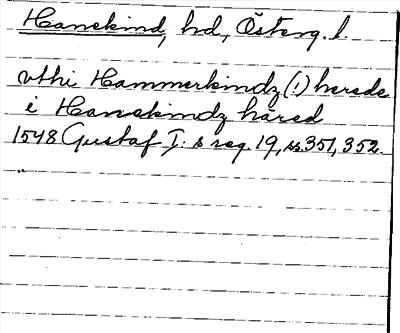 Hanekind, hd, Österg. l.
vthi Hammerkindz (!) herede
i Hanekindz härad
1548 Gustaf I: s reg. 19, ss. 351, 352.